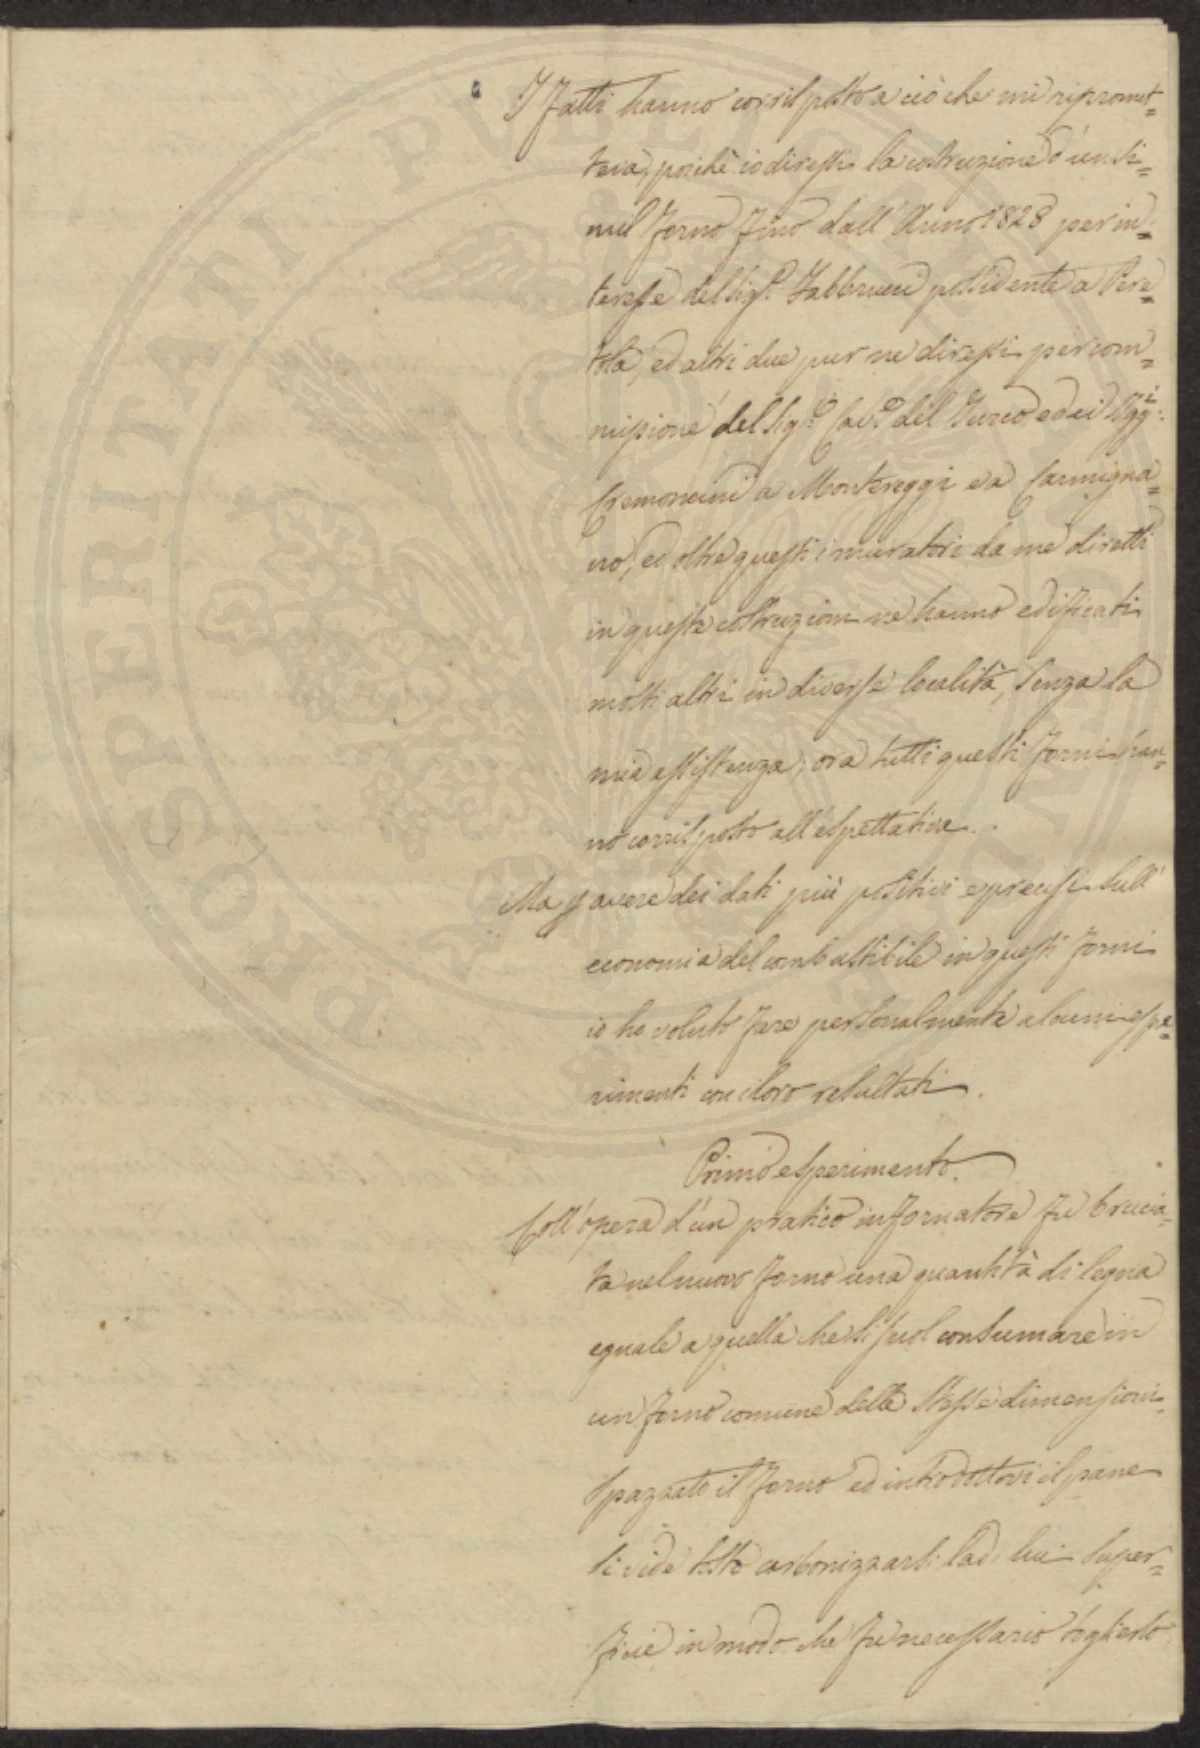 I fatti hanno corrisposto a ciò che mi ripromet=
teva, poichè io diressi la costruzione d'un si=
mil forno fino dall'Anno 1828 per in=
teresse del Sig.e Fabbrucci possidente a Pere=
tola, ed altri due pur ne diressi per com=
missione del Sig.e Cav.e del Turco ed ei Sigg.i
Cremoncini a Montereggi e a Carmigna=
no, ed oltre questi i muratori da me diretti
in queste costruzioni ne hanno edificati
molti altri in diverse località, senza la
mia assistenza; ora tutti questi forni han=
no corrisposto all'espettativa.
Ma p avere dei dati più positivi e precisi sull'
economia del combustibile in questi forni
io ho voluto fare personalmente alcuni espe=
rimenti con i loro resultati.
Primo esperimento.
Coll'opera d'un pratico infornatore fu brucia=
ta nel nuovo forno una quantità di legna
eguale a quella che si suol consumare in
un forno comune delle stesse dimensioni.
Spazzato il forno ed introdottovi il pane
si vide tosto carbonizzarsi la di lui super=
ficie in modo che fu necessario toglierlo
PROSPERITATI PUBLICAE